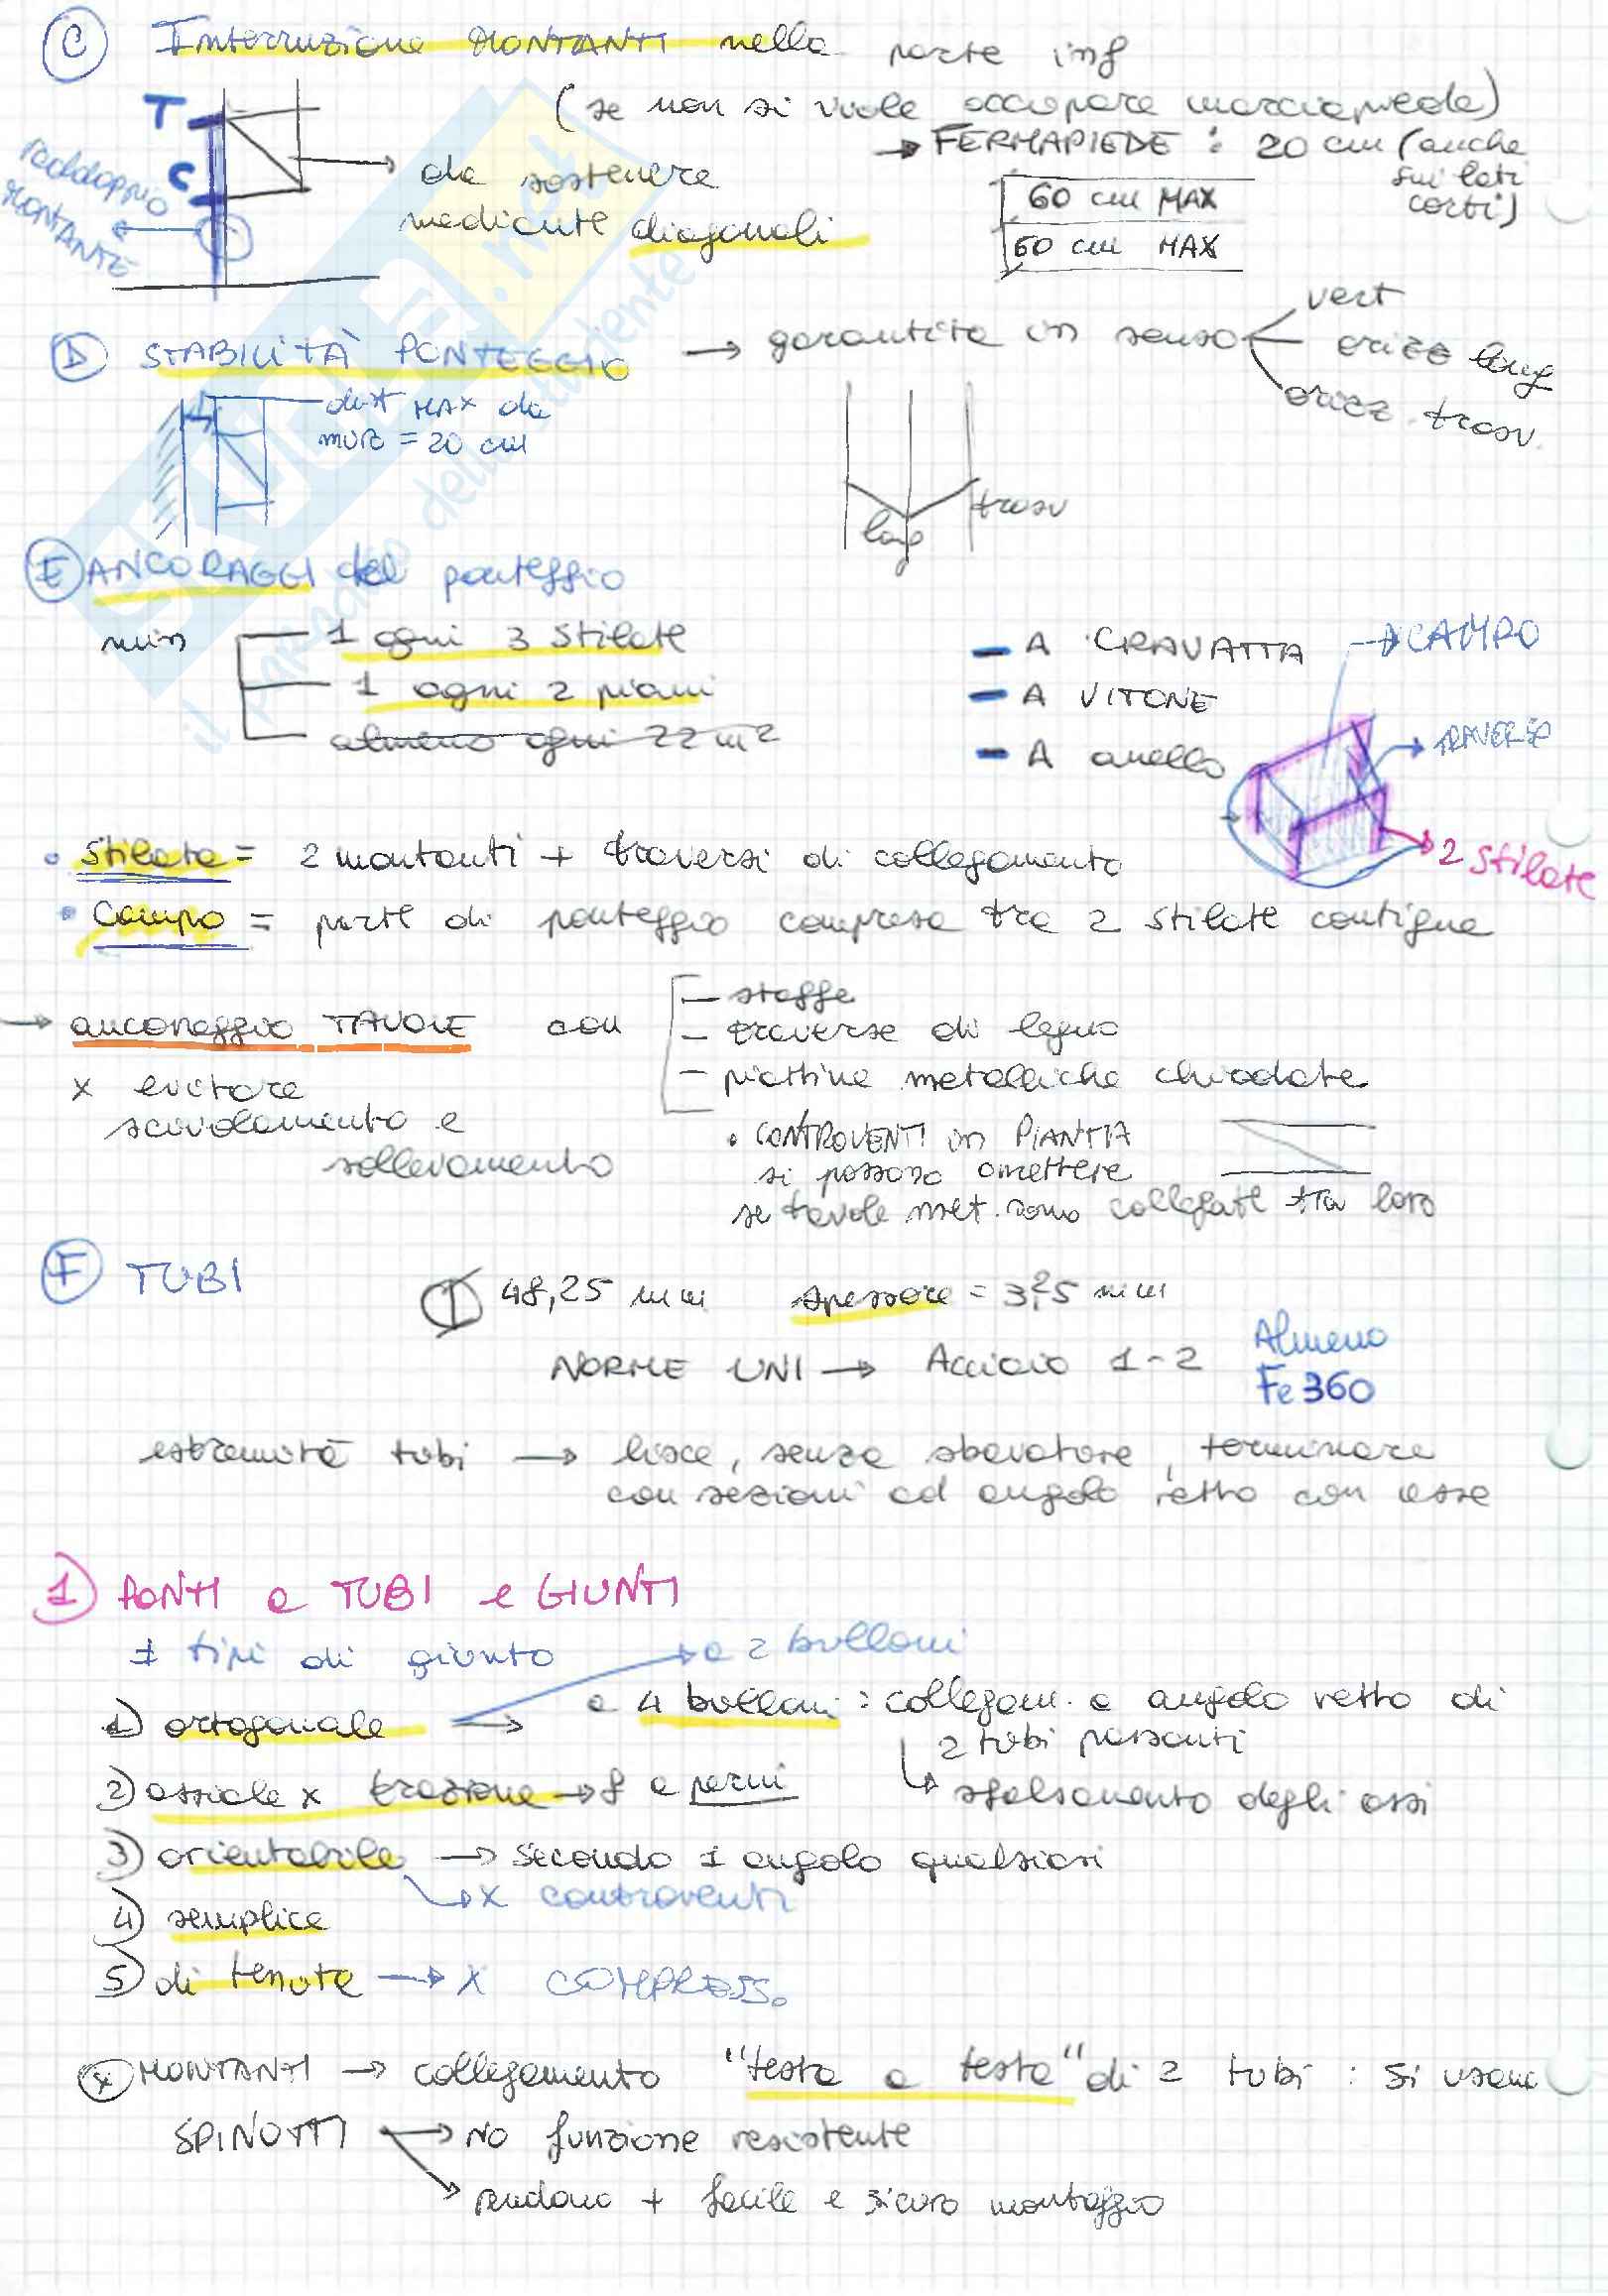 C Interruzione MONTANTI nella parte inf
(se non si vuole occupare marciapiede)
T
C
raddoppio
MONTANTE
da sostenere
mediante diagonali
→ FERMAPIEDE : 20 cm (anche
sui lati
corti)
60 cm MAX
60 cm MAX
D STABILITÀ PONTEGGIO → garantita in senso
vert
orizz long
orizz. trasv.
dist MAX da
muro = 20 cm
long
trasv
E ANCORAGGI del ponteggio
min
1 ogni 3 stilate
1 ogni 2 piani
almeno ogni 22 m2
- A CRAVATTA
- A VITONE
- A anello
→ CAMPO
TRAVERSO
2 stilate
• Stilata = 2 montanti + traversi di collegamento
• Campo = parte di ponteggio compresa tra 2 stilate contigue
→ ancoraggio TAVOLE con
- staffe
- traverse di legno
- piattine metalliche chiodate
x evitare
scivolamento e
sollevamento
• CONTROVENTI in PIANTA
si possono omettere
se tavole met. sono collegate tra loro
F TUBI
48,25 mm spessore = 3,25 mm
NORME UNI → Acciaio 1-2
Almeno
Fe 360
estremità tubi → lisce, senza sbavature, terminare
con sezioni ad angolo retto con asse
1) PONTI a TUBI e GIUNTI
tipi di giunto
→ a 2 bulloni
1) ortogonale → a 4 bulloni : collegam. a angolo retto di
2 tubi passanti
↳ sfalsamento degli assi
2) assiale x trazione → a perni
3) orientabile → secondo 1 angolo qualsiasi
↳ x controventi
4) semplice
5) di tenuta → x COMPRESS.
x MONTANTI → collegamento "testa a testa" di 2 tubi : si usano
SPINOTTI → NO funzione resistente
rendono + facile e sicuro montaggio
il paradiso dello studente